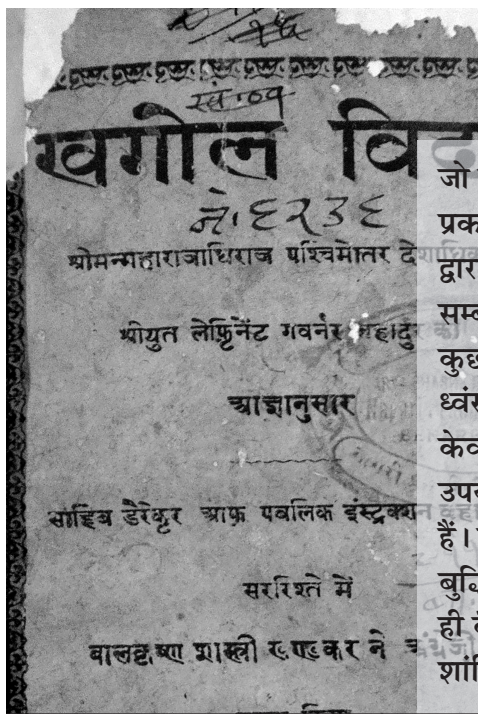 खगोल
नं० ६२३६
श्रीमन्महाराजाधिराज पश्चिमोत्तर देशाधि
श्रीयुत लेफ़्टिनेंट गवर्नर बहादुर की
आज्ञानुसार
साहिब डैरेक्टर आफ़ पबलिक इंस्ट्रक्शन
सररिश्ते में
बालकृष्ण शास्त्री खण्डकर ने अंग्रेज़ी
जो
प्रक
द्वार
सम्ब
कुछ
ध्वंस
केव
हैं।
ही